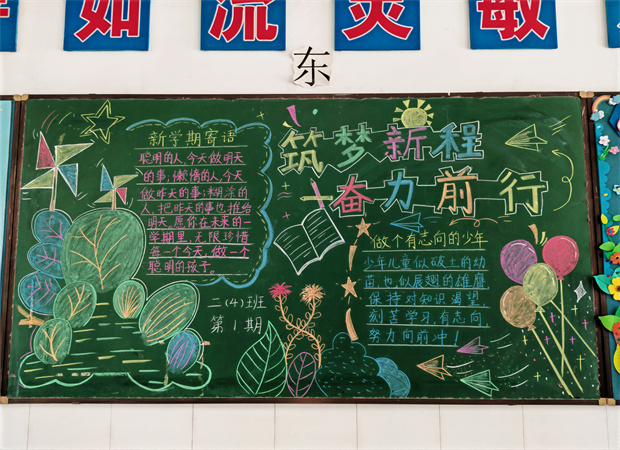 如 流 灵 敏
东
新学期寄语
聪明的人,今天做明天
的事;懒惰的人,今天
做昨天的事;糊涂的
人,把昨天的事也推给
明天。愿你在未来的一
学期里,无限珍惜
每一个今天,做一个
聪明的孩子。
二(4)班
第1期
筑梦新程
奋力前行
做个有志向的少年
少年儿童似破土的幼
苗也似展翅的雄鹰
保持对知识渴望,
刻苦学习,有志向
努力向前冲!